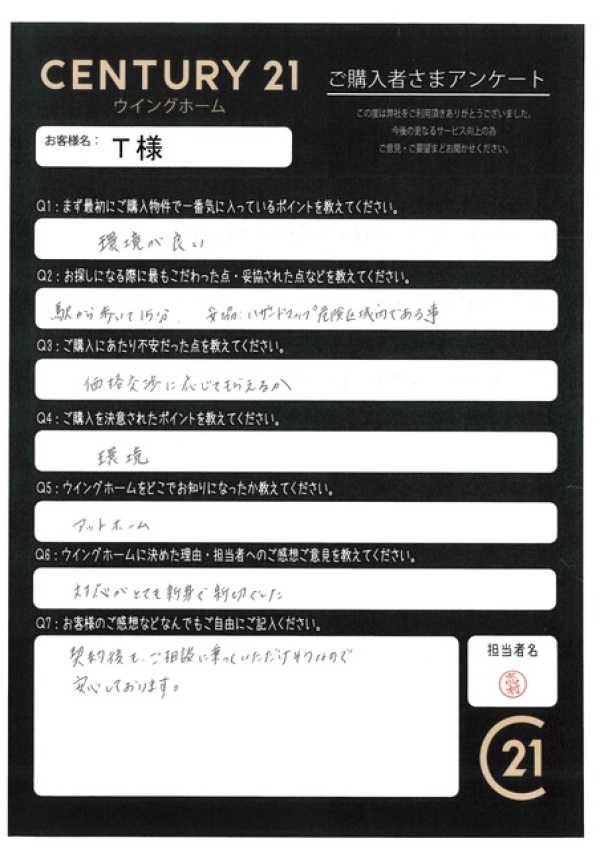 CENTURY 21
ウイングホーム
ご購入者さまアンケート
この度は弊社をご利用頂きありがとうございました。
今後の更なるサービス向上の為
ご意見・ご要望をお聞かせください。
お客様名： T様
Q1：まず最初にご購入物件で一番気に入っているポイントを教えてください。
環境が良い
Q2：お探しになる際に最もこだわった点・妥協された点などを教えてください。
駅から歩いて15分、妥協：ハザードマップ危険区域内である事
Q3：ご購入にあたり不安だった点を教えてください。
価格交渉に応じてもらえるか
Q4：ご購入を決意されたポイントを教えてください。
環境
Q5：ウイングホームをどこでお知りになったか教えてください。
アットホーム
Q6：ウイングホームに決めた理由・担当者へのご感想ご意見を教えてください。
対応がとても
でした
Q7：お客様のご感想などなんでもご自由にご記入ください。
契約後も、ご相談に乗っていただけそうなので
安心しております。
担当者名
志村
21